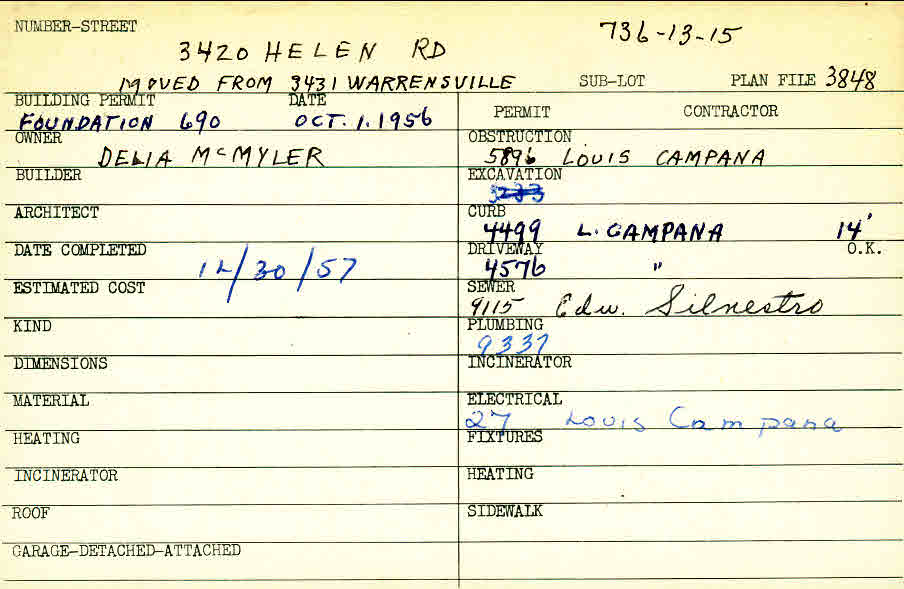 NUMBER-STREET 736-13-15
3420 HELEN RD
MOVED FROM 3431 WARRENSVILLE SUB-LOT PLAN FILE 3848
BUILDING PERMIT DATE
FOUNDATION 690 OCT. 1. 1956
OWNER
DELIA McMYLER
BUILDER
ARCHITECT
DATE COMPLETED
12/30/57
ESTIMATED COST
KIND
DIMENSIONS
MATERIAL
HEATING
INCINERATOR
ROOF
GARAGE-DETACHED-ATTACHED
PERMIT CONTRACTOR
OBSTRUCTION
5896 LOUIS CAMPANA
EXCAVATION
CURB
4499 L. CAMPANA 14'
DRIVEWAY O.K.
4576 "
SEWER
9115 Edw. Silnestro
PLUMBING
9337
INCINERATOR
ELECTRICAL
27 Louis Campana
FIXTURES
HEATING
SIDEWALK